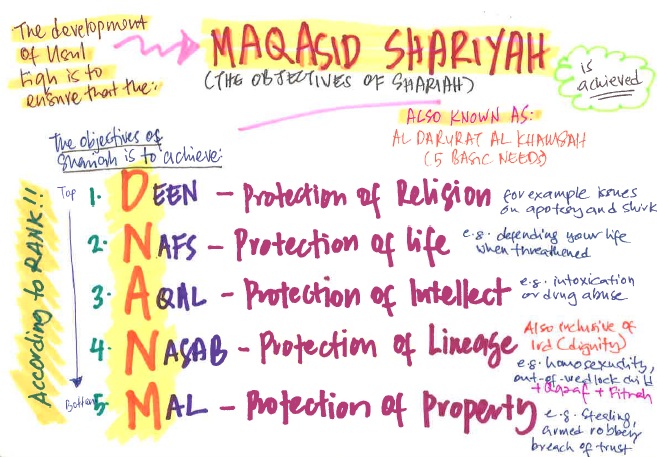 The development
of Usul
Fiqh is to
ensure that the:
MAQASID SHARIYAH
(THE OBJECTIVES OF SHARIAH)
is
achieved
ALSO KNOWN AS:
AL DARURAT AL KHAMSAH
(5 BASIC NEEDS)
The objectives of
Shariah is to achieve:
According to RANK!!
Top
1. DEEN – Protection of Religion
for example issues
on apotasy and shirk
2. NAFS – Protection of life
e.g. defending your life
when threathened
3. AQAL – Protection of Intellect
e.g. intoxication
or drug abuse
4. NASAB – Protection of Lineage
Also inclusive of
Ird (dignity)
e.g. homosexuality,
out-of-wedlock child
+ Qazaf + Fitnah
Bottom
5. MAL – Protection of Property
e.g. stealing,
armed robbery
breach of trust